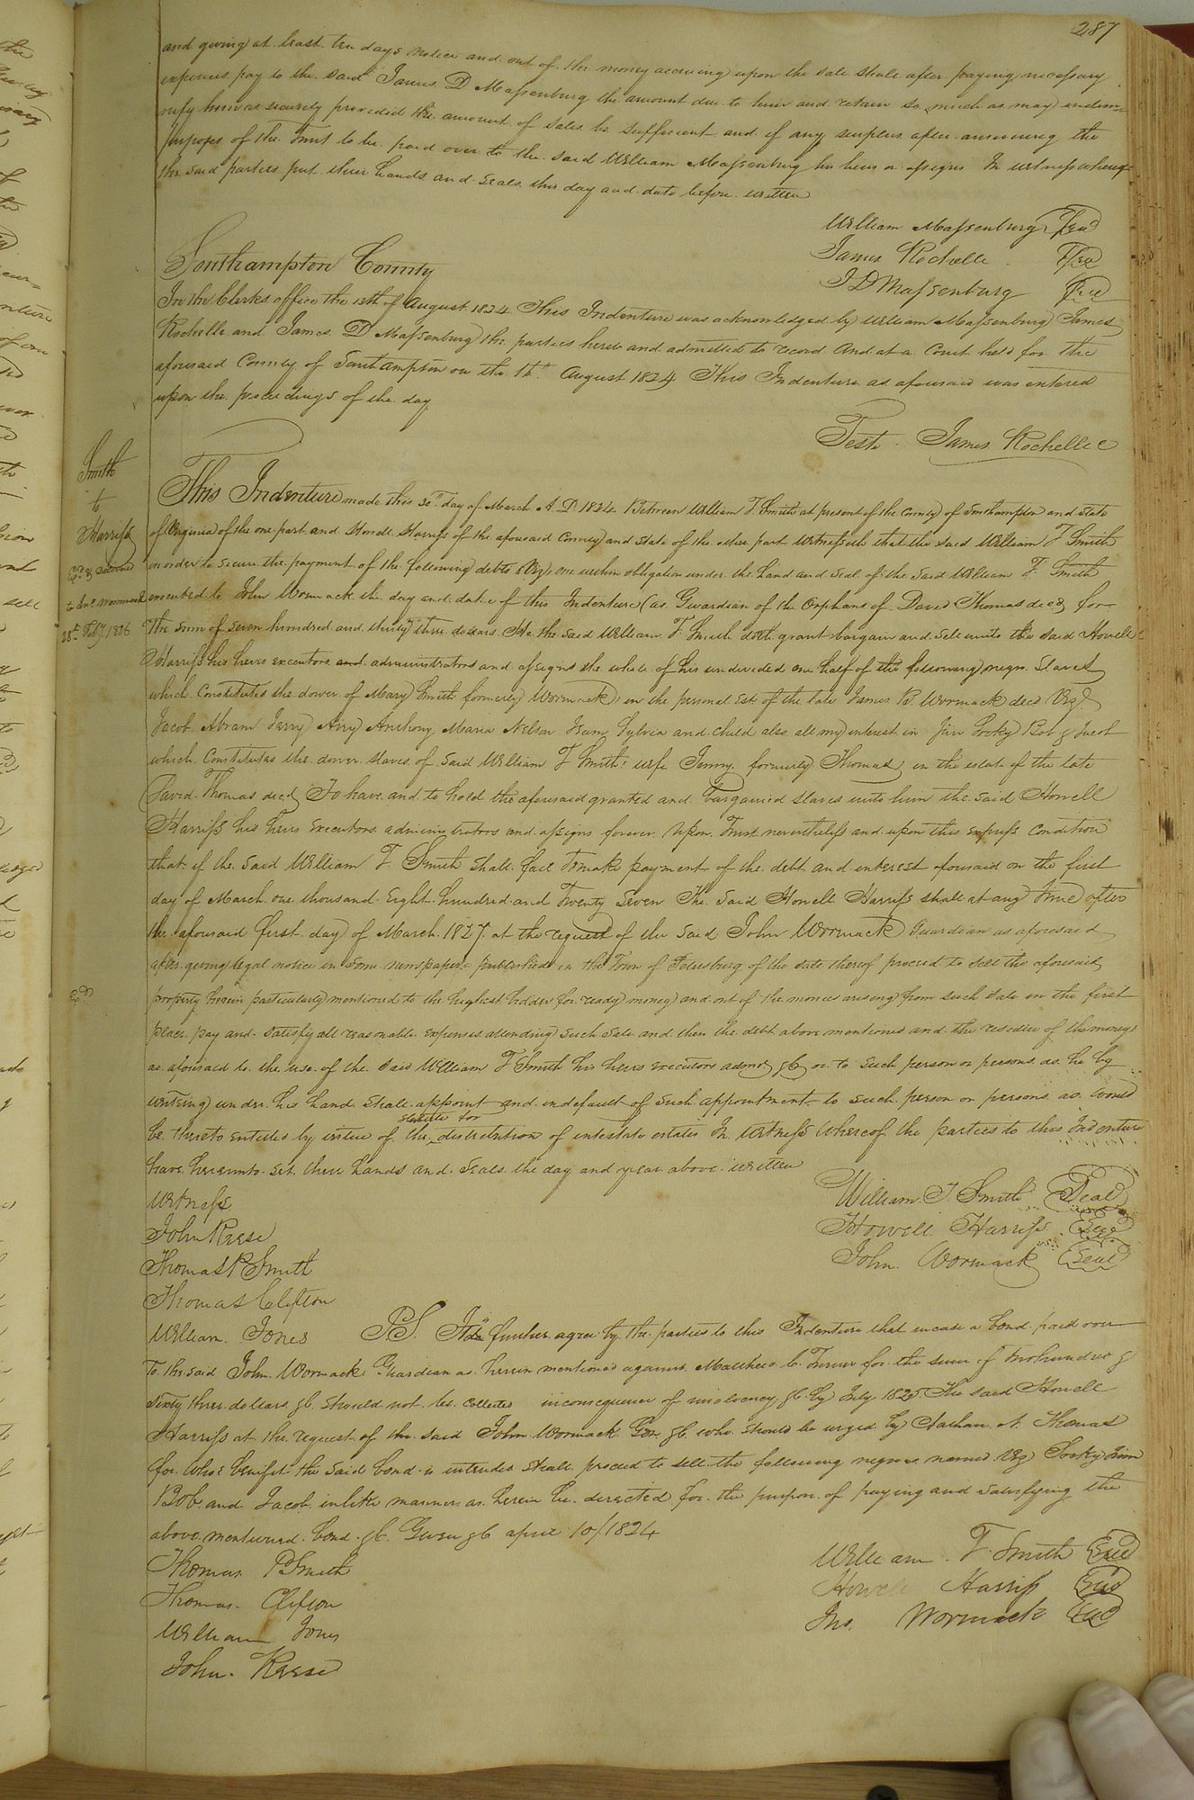 287
and giving at least ten days notice and out of the money accruing upon the sale shall after paying necessary
expences pay to the said James D Massenburg the amount due to him and retain so much as may indem-
nify him as security provided the amount of sales be sufficient and if any surplus after answering the
purposes of the Trust to be paid over to the said William Massenburg his heirs or assigns In witness whereof
the said parties put their hands and seals this day and date before written
William Massenburg Seal
James Rochelle Seal
J D Massenburg Seal
Southampton County
In the Clerks office the 13th of August 1824 This Indenture was acknowledged by William Massenburg James
Rochelle and James D Massenburg the parties hereto and admitted to record And at a Court held for the
aforesaid County of Southampton on the August 1824 This Indenture as aforesaid was entered
upon the proceedings of the day
Teste James Rochelle C
Smith
to
Harriss
Ex.d & delivered
to Jno Wommack
28th Feby 1826
This Indenture made this 30th day of March A. D. 1824 Between William T. Smith at present of the County of Southampton and State
of Virginia of the one part and Howell Harriss of the aforesaid County and State of the other part Witnesseth that the said William T Smith
in order to secure the payment of the following debts (Viz) one certain obligation under the hand and seal of the said William T. Smith
executed to John Wormack the day and date of this Indenture (as Guardian of the Orphans of David Thomas decd) for
the sum of seven hundred and thirty three dollars. He the said William T. Smith doth grant bargain and sell unto the said Howell
Harriss his heirs executors and administrators and assigns the whole of his undivided one half of the following negro slaves
which Constitutes the dower of Mary Smith formerly Wormack in the personal Est. of the late James B. Wormack decd Viz)
Jacob Abram Jerry Airy Anthony Maria Nelson Isam Sylvia and child also all my interest in Jim Sooky Bob & Jacob
which Constitutes the dower slaves of said William T Smiths wife Jinny formerly Thomas in the estate of the late
David Thomas decd To have and to hold the aforesaid granted and bargained slaves unto him the said Howell
Harriss his heirs Executors administrators and assigns forever Upon Trust nevertheless and upon this express Condition
that if the said William T Smith shall fail to make payment of the debt and interest aforesaid on the first
day of March one thousand Eight hundred and Twenty Seven The Said Howell Harriss shall at any time after
the aforesaid first day of March 1827 at the request of the said John Wormack Guardian as aforesaid
after giving legal notice in some newspaper published in the Town of Petersburg of the date thereof proceed to sell the aforesaid
Exd
property herein particularly mentioned to the highest bidder for ready money and out of the monies arising from such sale in the first
place pay and satisfy all reasonable expenses attending such sale and then the debt above mentioned and the residue of the money
as aforesaid to the use of the said William T Smith his heirs executors admrs &c or to such person or persons as he by
writing under his hand shall appoint and in default of such appointment to such person or persons as would
statute for
be thereto entitled by virtue of the distribution of intestate estates In Witness Whereof the parties to this Indenture
have hereunto set their hands and seals the day and year above written
William T Smith Seal
Witness
Howell Harriss Seal
John Reese
John Wormack Seal
Thomas P Smith
Thomas Clifton
William Jones P.S. It is further agree by the parties to this Indenture that in case a bond paid over
to the said John Wormack Guardian as herein mentioned against Matthew C. Turner for the sum of two hundred &
sixty three dollars &c should not be collected inconsequence of insolvency &c by July 1825 The said Howell
Harriss at the request of the said John Wormack Gdn &c who should be urged by Nathan Thomas
for whose benefit the said bond is intended shall proceed to sell the following negroes named Viz Sooky Jim
Bob and Jacob in like manner as herein be directed for the purpose of paying and satisfying the
above mentioned bond &c Given &c april 10/1824
William T. Smith Seal
Thomas P Smith
Howell Harriss Seal
Thomas Clifton
Jno. Wormack Seal
William Jones
John Reese